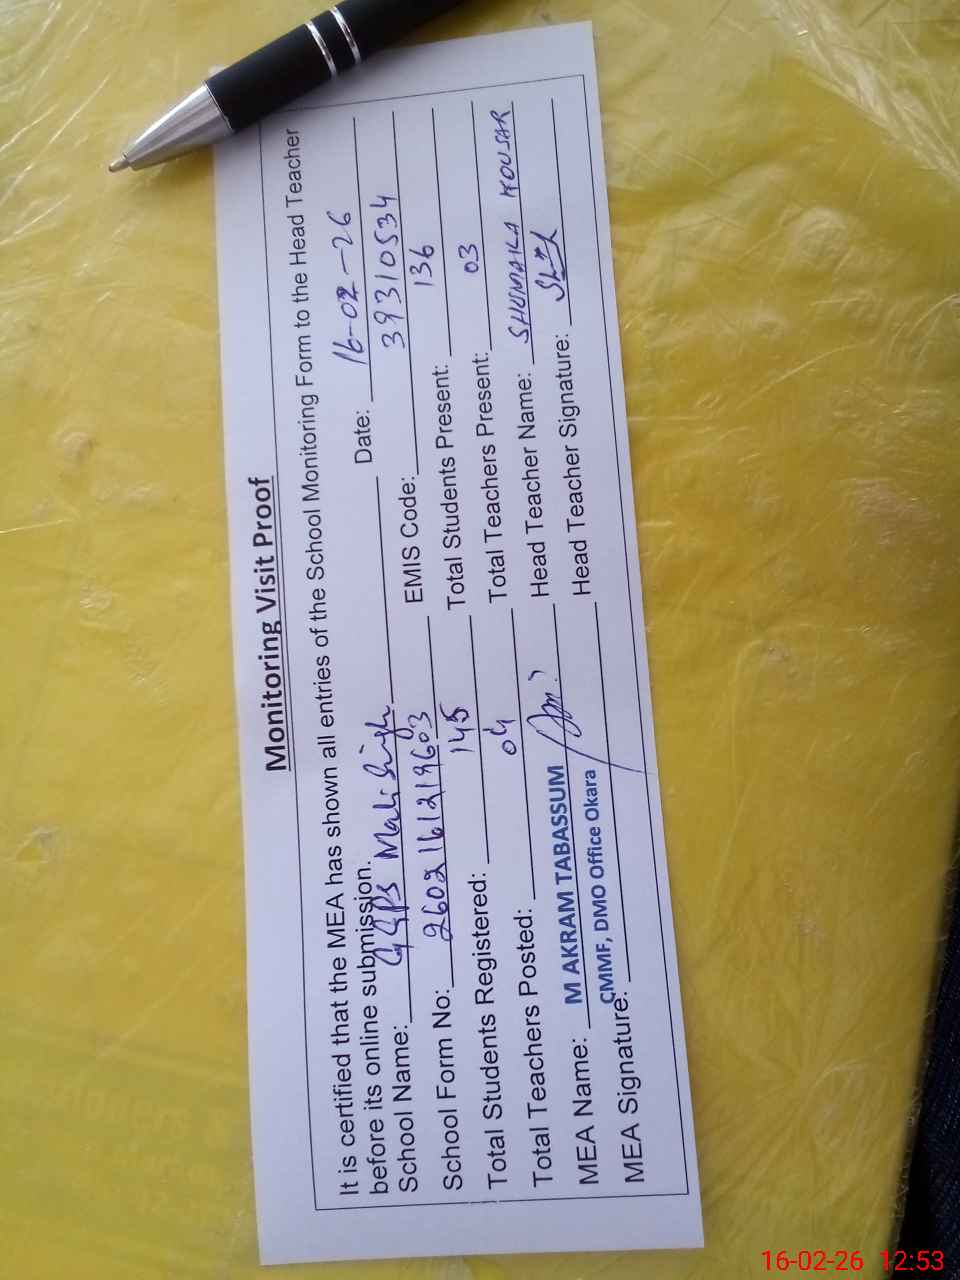 Monitoring Visit Proof
It is certified that the MEA has shown all entries of the School Monitoring Form to the Head Teacher
before its online submission.
School Name: GGPS Mali Singh Date: 16-02-26
School Form No: 2602161219603 EMIS Code: 39310534
Total Students Registered: 145 Total Students Present: 136
Total Teachers Posted: 04 Total Teachers Present: 03
MEA Name: M AKRAM TABASSUM Head Teacher Name: SHUMAILA KOUSAR
CMMF, DMO Office Okara
MEA Signature: Head Teacher Signature:
16-02-26 12:53